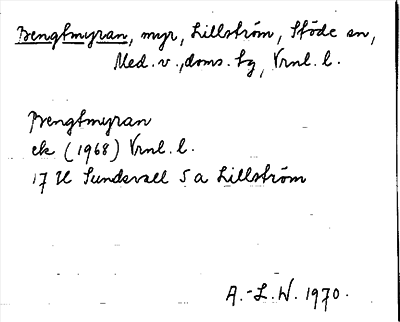 Bengtmyran, myr, Lillström, Stöde sn,
Med. v., doms. tg, Vrnl. l.
Bengtmyran
ek (1968) Vrnl. l.
17 H Sundsvall 5 a Lillström
A.-L.W. 1970.